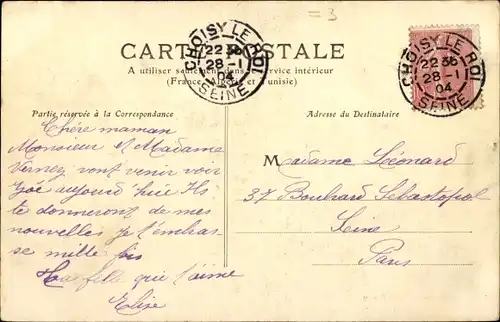 =3
CARTE POSTALE
A utiliser seulement dans le service intérieur
(France, Algérie et Tunisie)
CHOISY LE ROI
22 30
28 -1
04
SEINE
CHOISY LE ROI
22 30
28 -1
04
SEINE
Partie réservée à la Correspondance
Adresse du Destinataire
Chère maman
Monsieur et Madame
Verney vont venir voir
Zoé aujourd'huie Ils
te donneront de mes
nouvelles je t'embras
se mille fois
Ta fille qui t'aime
Elise
Madame Léonard
37 Boulvard Sébastopol
Seine
Paris